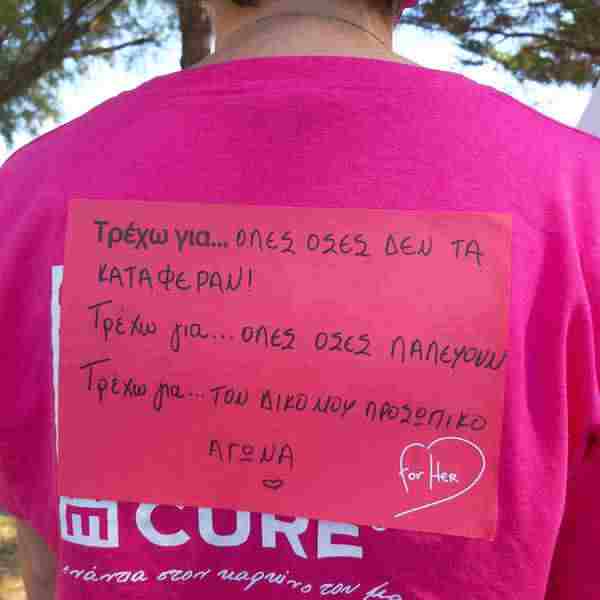 Τρέχω για... ΟΛΕΣ ΟΣΕΣ ΔΕΝ ΤΑ
ΚΑΤΑΦΕΡΑΝ!
Τρέχω για... ΟΛΕΣ ΟΣΕΣ ΠΑΛΕΥΟΥΝ
Τρέχω για... ΤΟΝ ΔΙΚΟ ΜΟΥ ΠΡΟΣΩΠΙΚΟ
ΑΓΩΝΑ
for Her
E CURE
ενάντια στον καρκίνο του μα